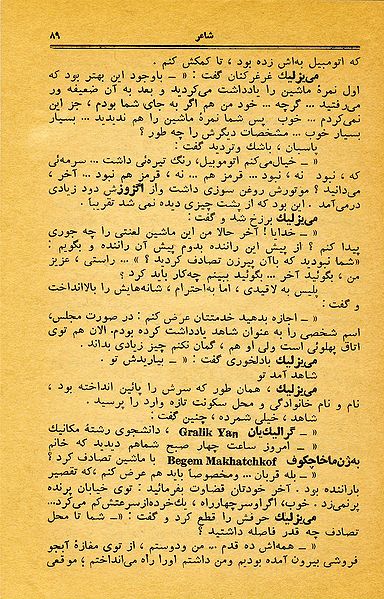 شاعر
۸۹
که اتومبیل به‌اش زده بود ، تا کمکش کنم .
می‌یزلیك غرغرکنان گفت : « ــ باوجود این بهتر بود که
اول نمرهٔ ماشین را یادداشت می‌کردید و بعد به آن ضعیفه ور
می‌رفتید ... گرچه ... خود من هم اگر به جای شما بودم ، جز این
نمی‌کردم ... خوب پس شما نمرهٔ ماشین را هم ندیدید ... بسیار
بسیار خوب ... مشخصات دیگرش را چه طور ؟
پاسبان ، باشك وتردید گفت :
« ــ خیال‌می‌کنم اتوموبیل، رنگ تیره‌ئی داشت ... سرمه‌ئی
که ، نبود نه ، نبود ... قرمز هم ... نه ، قرمز هم نبود ... آخر ،
می‌دانید ؟ موتورش روغن سوزی داشت واز اگزوزش دود زیادی
درمی‌آمد . این بود که از پشت چیزی دیده نمی شد تقریبا .
می‌یزلیك برزخ شد و گفت :
« ــ خدایا ! آخر حالا من این ماشین لعنتی را چه جوری
پیدا کنم ؟ از پیش این راننده بدوم پیش آن راننده و بگویم :
«شما نبودید که باآن پیرزن تصادف کردید ؟ » ... راستی ، عزیز
من ، بگوئید آخر ... بگوئید ببینم چه‌کار باید کرد ؟
پلیس به لاقیدی ، اما به‌احترام ، شانه‌هایش را بالاانداخت
و گفت :
« ــ اجازه بدهید خدمتتان عرض کنم : در صورت مجلس،
اسم شخصی را به عنوان شاهد یادداشت کرده بودم. الان هم توی
اتاق پهلوئی است ولی او هم ، گمان نکنم چیز زیادی بداند .
می‌یزلیك بادلخوری گفت : « ــ بیاریدش تو .
شاهد آمد تو
می‌یزلیك ، همان طور که سرش را پائین انداخته بود ،
نام و نام خانوادگی و محل سکونت تازه وارد را پرسید .
شاهد ، خیلی شمرده ، چنین گفت :
« ــ گرالیك‌یان Gralik Yan ، دانشجوی رشتهٔ مکانیك
« ــ امروز ساعت چهار صبح شماهم دیدید که خانم
به‌ژن‌ماخاچکوف Begem Makhatchkof با ماشین تصادف کرد ؟
« ــ بله قربان ... ومخصوصاً باید هم عرض کنم ،که تقصیر
باراننده بود . آخر خودتان قضاوت بفرمائید : توی خیابان پرنده
پرنمی‌زد . خوب، اگراوسرچهارراه ، یك‌خرده‌ازسرعتش‌کم می‌کرد...
می‌یزلیك حرفش را قطع کرد و گفت : «ــ شما تا محل
تصادف چه قدر فاصله داشتید ؟
« ــ همه‌اش ده قدم ... من ودوستم ، از توی مغازهٔ آبجو
فروشی بیرون آمده بودیم ومن داشتم اورا راه می‌انداختم ؛ موقعی